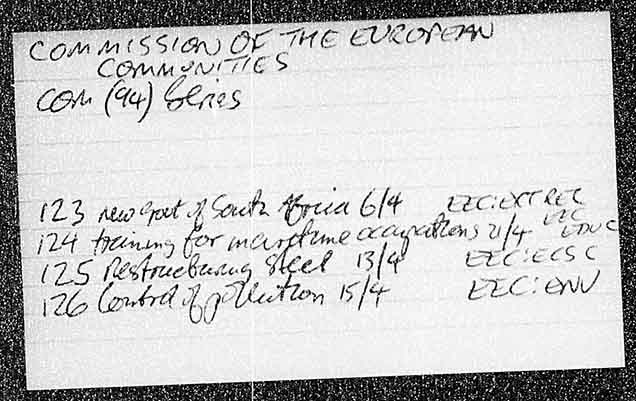 COMMISSION OF THE EUROPEAN
COMMUNITIES
COM (94) Series
123 new govt of South Africa 6/4 EEC:EXT REL
124 training for maritime occupations 21/4 EEC EDUC
125 Restructuring Steel 13/4 EEC:ECSC
126 Control of pollution 15/4 EEC:ENV